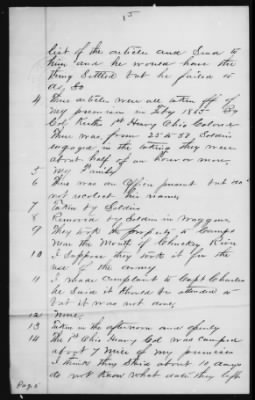 15
list of the articles and Send to
him and he would have the
thing Settled but he failed to
do so
4 These articles were all taken off of
my premises in Feby 1865 By
Col Kirths 1st Heavy Ohio Colored
There was from 25 to 50 Soldiers
engaged in the taking they were
about half of an hour or more.
5 My Family
6 There was an Officer present but do
not recollect his name
7 Taken by Soldiers
8 Removed by Soldiers in Waggons
9 They took the property to Camps
Near the Mouth of Chuckey River
10 I Suppose they took it for the
use of the army
11 I made complaint to Capt
he Said it Should be attended to
but it was not done,
12 None.
13 Taken in the afternoon and openly
14 The 1st Ohio Heavy Col was camped
about 7 miles of my premises
I think they Staid about 10 days
do not know what date they left
Page 5